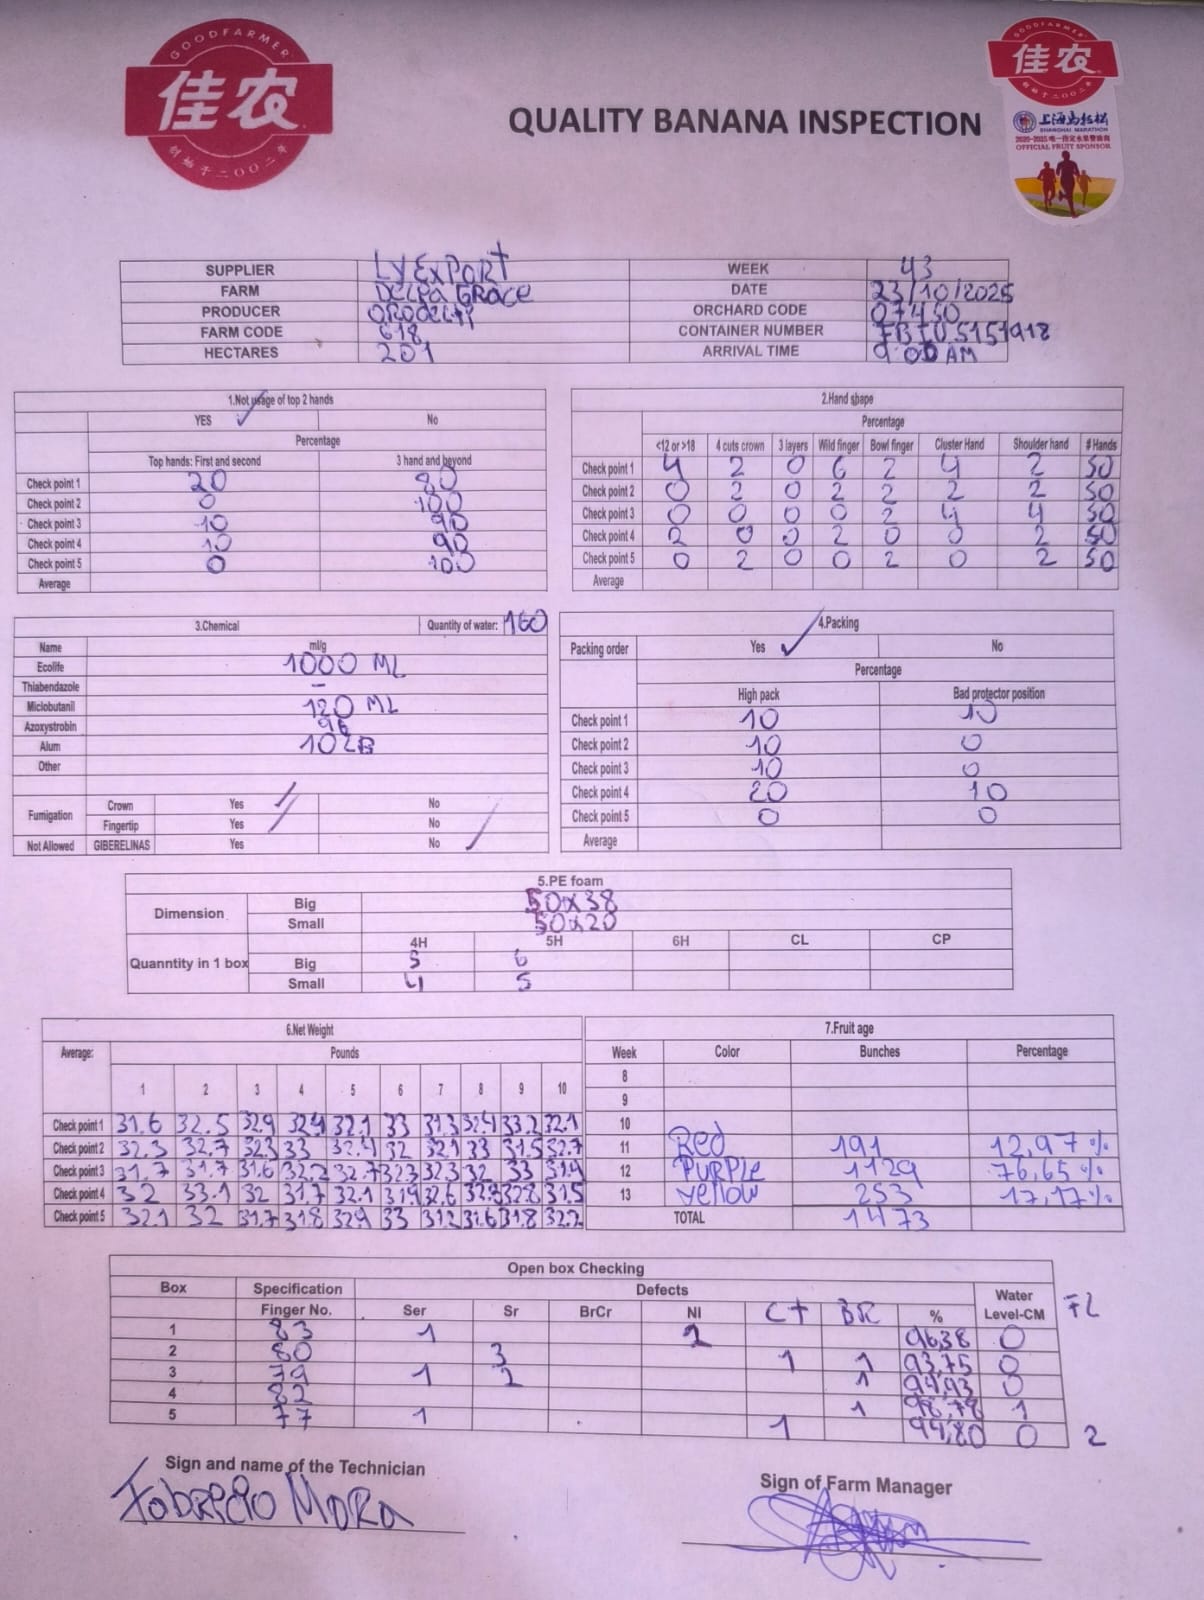 GOODFARMER
佳农
创始于二〇〇二年
GOODFARMER
佳农
创始于二〇〇二年
上海马拉松
SHANGHAI MARATHON
OFFICIAL FRUIT SPONSOR
QUALITY BANANA INSPECTION
SUPPLIER LYEXPORT WEEK 43
FARM DELPA GRACE DATE 23/10/2025
PRODUCER ORODELTI ORCHARD CODE 07430
FARM CODE 618 CONTAINER NUMBER
HECTARES 201 ARRIVAL TIME 9:00 AM
1.Not usage of top 2 hands
YES ✓ No
Percentage
Top hands: First and second 3 hand and beyond
Check point 1 20 80
Check point 2 0 100
Check point 3 10 90
Check point 4 10 90
Check point 5 0 100
Average
2.Hand shape
Percentage
<12 or >18 4 cuts crown 3 layers Wild finger Bowl finger Cluster Hand Shoulder hand # Hands
Check point 1 4 2 0 6 2 4 2 50
Check point 2 0 2 0 2 2 2 2 50
Check point 3 0 0 0 0 2 4 4 50
Check point 4 2 0 0 2 0 0 2 50
Check point 5 0 2 0 0 2 0 2 50
Average
3.Chemical Quantity of water: 160
Name ml/g
Ecolife 1000 ML
Thiabendazole –
Miclobutanil 120 ML
Azoxystrobin 96
Alum 10 LB
Other
Fumigation Crown Yes / No
Fingertip Yes / No
Not Allowed GIBERELINAS Yes No /
4.Packing
Packing order Yes ✓ No
Percentage
High pack Bad protector position
Check point 1 10 10
Check point 2 10 0
Check point 3 10 0
Check point 4 20 10
Check point 5 0 0
Average
5.PE foam
Dimension Big 50x38
Small 50x20
4H 5H 6H CL CP
Quanntity in 1 box Big 5 6
Small 4 5
6.Net Weight
Average: Pounds
1 2 3 4 5 6 7 8 9 10
Check point 1 31.6 32.5 32.9 32.4 32.1 33 31.3 32.4 33.2 32.1
Check point 2 32.3 32.7 32.3 33 32.4 32 32.1 33 31.5 32.7
Check point 3 31.7 31.7 31.6 32.2 32.7 32.3 32.3 32 33 31.9
Check point 4 32 33.1 32 31.7 32.1 31.9 32.6 32.8 31.5
Check point 5 32.1 32 31.7 31.8 32.9 33 31.2 31.6 31.8 32.2
7.Fruit age
Week Color Bunches Percentage
8
9
10
11 Red 191 12,97%
12 PURPLE 1129 76,65%
13 Yellow 253 17,17%
TOTAL 1473
Open box Checking
Box Specification Defects Water
Finger No. Ser Sr BrCr NI CT BR % Level-CM FL
1 83 1 2 96,38 0
2 80 3 1 1 93,75 0
3 79 1 2 1 94,93 0
4 82 1 98,78 1
5 77 1 1 0 2
Sign and name of the Technician
Fabricio Mora
Sign of Farm Manager